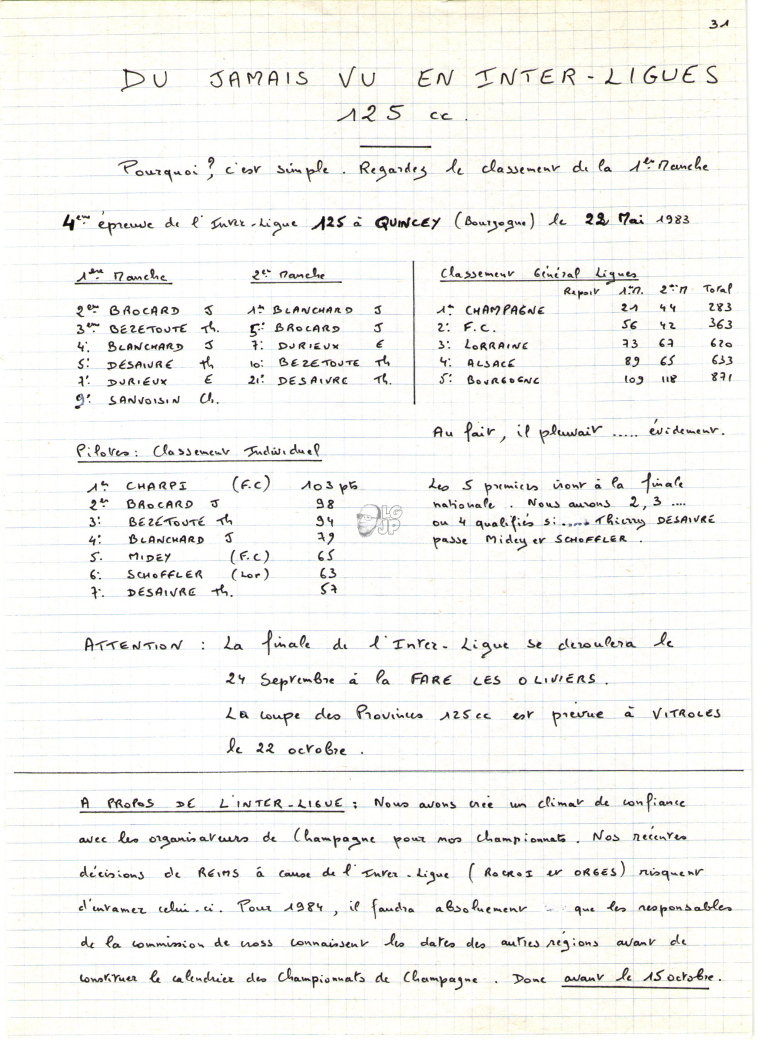 31
DU JAMAIS VU EN INTER-LIGUES
125 cc.
Pourquoi ? c'est simple. Regardez le classement de la 1ère Manche
4ème épreuve de l'Inter-Ligue 125 à QUINCEY (Bourgogne) le 22 Mai 1983
1ère Manche
2ème BROCARD J
3ème BEZETOUTE Th.
4° BLANCHARD J
5° DESAIVRE Th
7° DURIEUX E
9° SANVOISIN Ch.
2ème Manche
1er BLANCHARD J
5° BROCARD J
7° DURIEUX E
10° BEZETOUTE Th
21° DESAIVRE Th.
Classement Général Ligues
Report 1°M. 2ème M Total
1er CHAMPAGNE 21 44 283
2° F.C. 56 42 363
3° LORRAINE 73 67 620
4° ALSACE 89 65 633
5° BOURGOGNE 109 118 871
Au fait, il pleuvait ..... évidement.
Pilotes : Classement Individuel
1er CHARPI (F.C) 103 pts
2ème BROCARD J 98
3° BEZETOUTE Th 94
4° BLANCHARD J 79
5. MIDEY (F.C) 65
6° SCHOFFLER (Lor) 63
7° DESAIVRE Th. 57
Les 5 premiers iront à la finale
nationale. Nous aurons 2, 3 ....
ou 4 qualifiés si ..... Thierry DESAIVRE
passe Midey et SCHOFFLER.
LG
JP
ATTENTION : La finale de l'Inter-Ligue se deroulera le
24 Septembre à la FARE LES OLIVIERS.
La coupe des Provinces 125cc est prévue à VITROLES
le 22 octobre.
A PROPOS DE L'INTER-LIGUE : Nous avons créé un climat de confiance
avec les organisateurs de Champagne pour nos championnats. Nos récentes
décisions de REIMS à cause de l'Inter-Ligue (ROCROI et ORGES) risquent
d'entamer celui-ci. Pour 1984, il faudra absoluement que les responsables
de la commission de cross connaissent les dates des autres régions avant de
constituer le calendrier des Championnats de Champagne. Donc avant le 15 octobre.